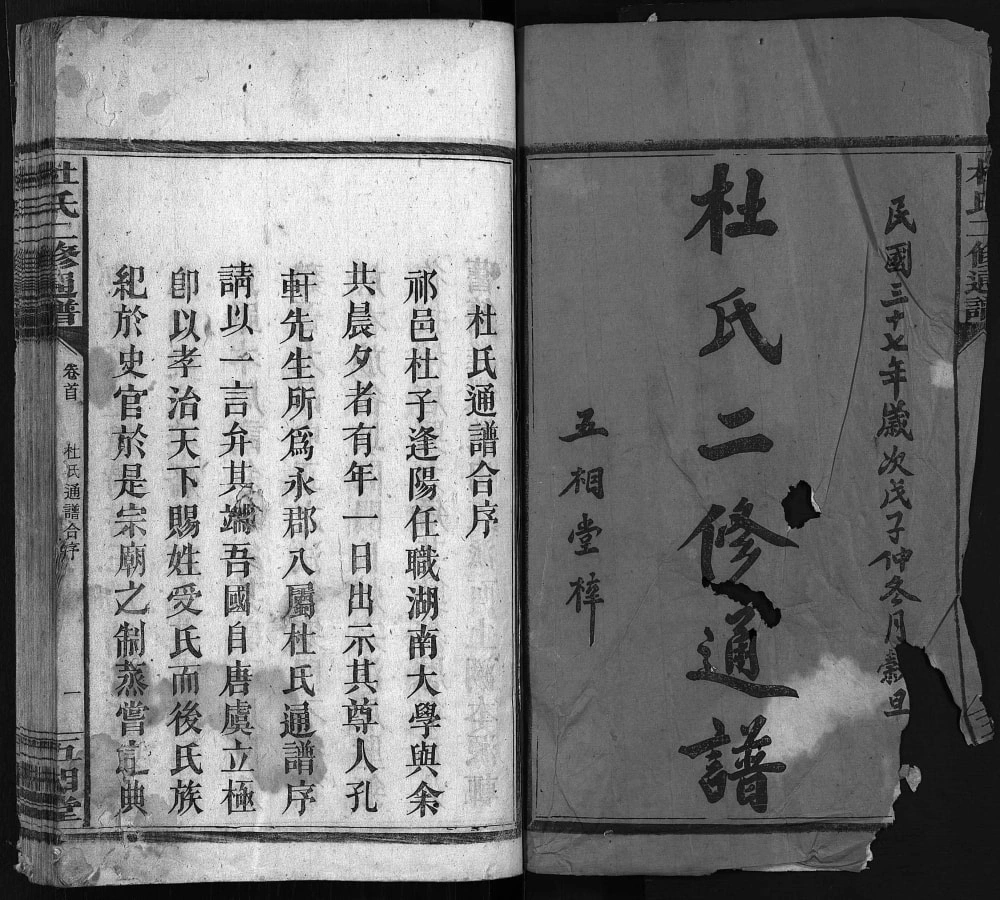 民國三十七年歲次戊子仲冬月穀旦
杜氏二修通譜
五相堂梓
杜氏二修通譜
杜氏通譜合序
祁邑杜子逢陽任職湖南大學與余
共晨夕者有年一日出示其尊人孔
軒先生所爲永郡八屬杜氏通譜序
請以一言弁其端吾國自唐虞立極
卽以孝治天下賜姓受氏而後氏族
紀於史官於是宗廟之制蒸嘗之典
杜氏二修通譜
卷首
杜氏通譜合序
一
五相堂